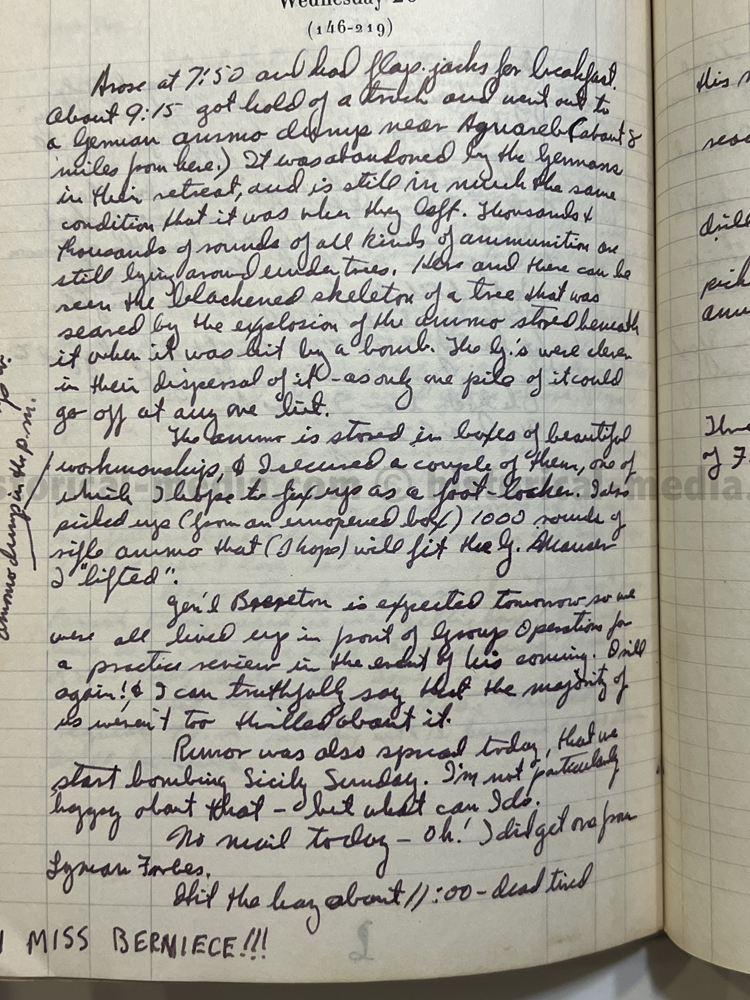 Wednesday 26
(146-219)
Arose at 7:50 and had flap-jacks for breakfast.
About 9:15 got hold of a truck and went out to
a German ammo dump near Aguareb (about 8
miles from here.) It was abandoned by the Germans
in their retreat, and is still in much the same
condition that it was when they left. Thousands &
thousands of rounds of all kinds of ammunition are
still lying around under trees. Here and there can be
seen the blackened skeleton of a tree that was
seared by the explosion of the ammo stored beneath
it when it was hit by a bomb. The G.'s were clever
in their dispersal of it - as only one pile of it could
go off at any one hit.
The ammo is stored in boxes of beautiful
workmanship, & I secured a couple of them, one of
which I hope to fix up as a foot-locker. I also
picked up (from an unopened box) 1000 rounds of
rifle ammo that (I hope) will fit the G. Mauser
I "lifted".
Gen'l Brereton is expected tomorrow so we
were all lined up in front of Group Operations for
a practice review in the event of his coming. Drill
again! & I can truthfully say that the majority of
us weren't too thrilled about it.
Rumor was also spread today, that we
start bombing Sicily Sunday. I'm not particularly
happy about that - but what can I do.
No mail today - Oh! I did get one from
Lyman Forbes.
Hit the hay about 11:00 - dead tired
I MISS BERNIECE!!!
ammo dump in the p.m.
his
drill
pick
amm
of 7